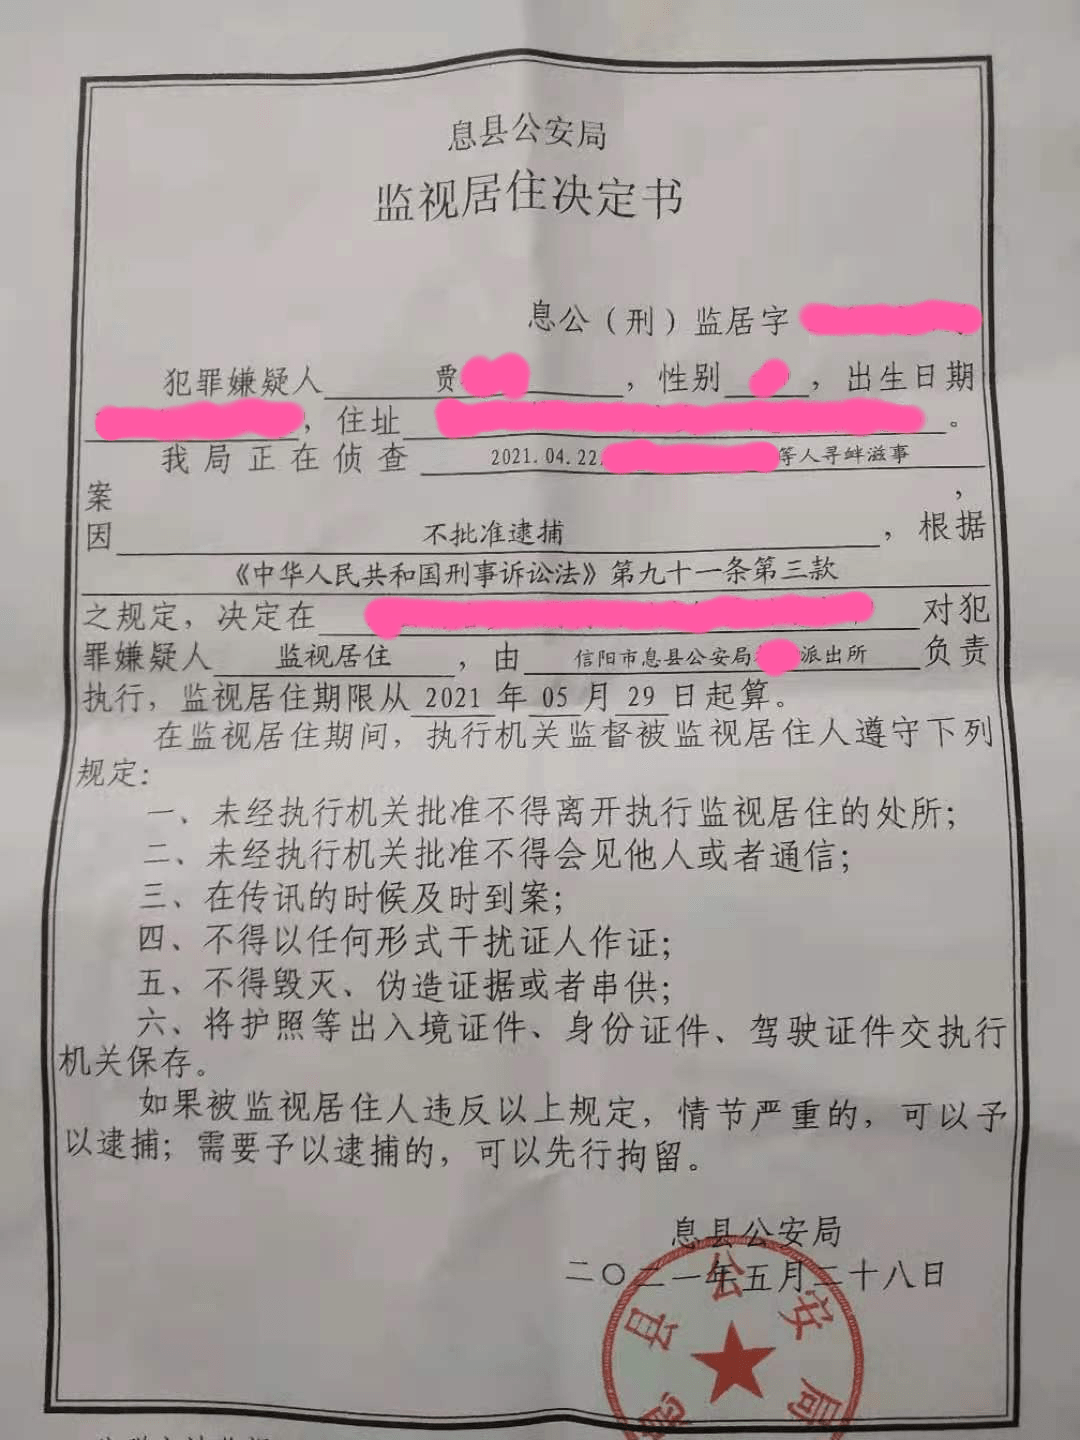 息县公安局
监视居住决定书
息公（刑）监居字
犯罪嫌疑人 贾 ，性别 ，出生日期
，住址 。
我局正在侦查 2021.04.22. 等人寻衅滋事
案 ，
因 不批准逮捕 ，根据
《中华人民共和国刑事诉讼法》第九十一条第三款
之规定，决定在 对犯
罪嫌疑人 监视居住 ，由 信阳市息县公安局 派出所 负责
执行，监视居住期限从 2021 年 05 月 29 日起算。
在监视居住期间，执行机关监督被监视居住人遵守下列
规定：
一、未经执行机关批准不得离开执行监视居住的处所；
二、未经执行机关批准不得会见他人或者通信；
三、在传讯的时候及时到案；
四、不得以任何形式干扰证人作证；
五、不得毁灭、伪造证据或者串供；
六、将护照等出入境证件、身份证件、驾驶证件交执行
机关保存。
如果被监视居住人违反以上规定，情节严重的，可以予
以逮捕；需要予以逮捕的，可以先行拘留。
息县公安局
二〇二一年五月二十八日
息县公安局